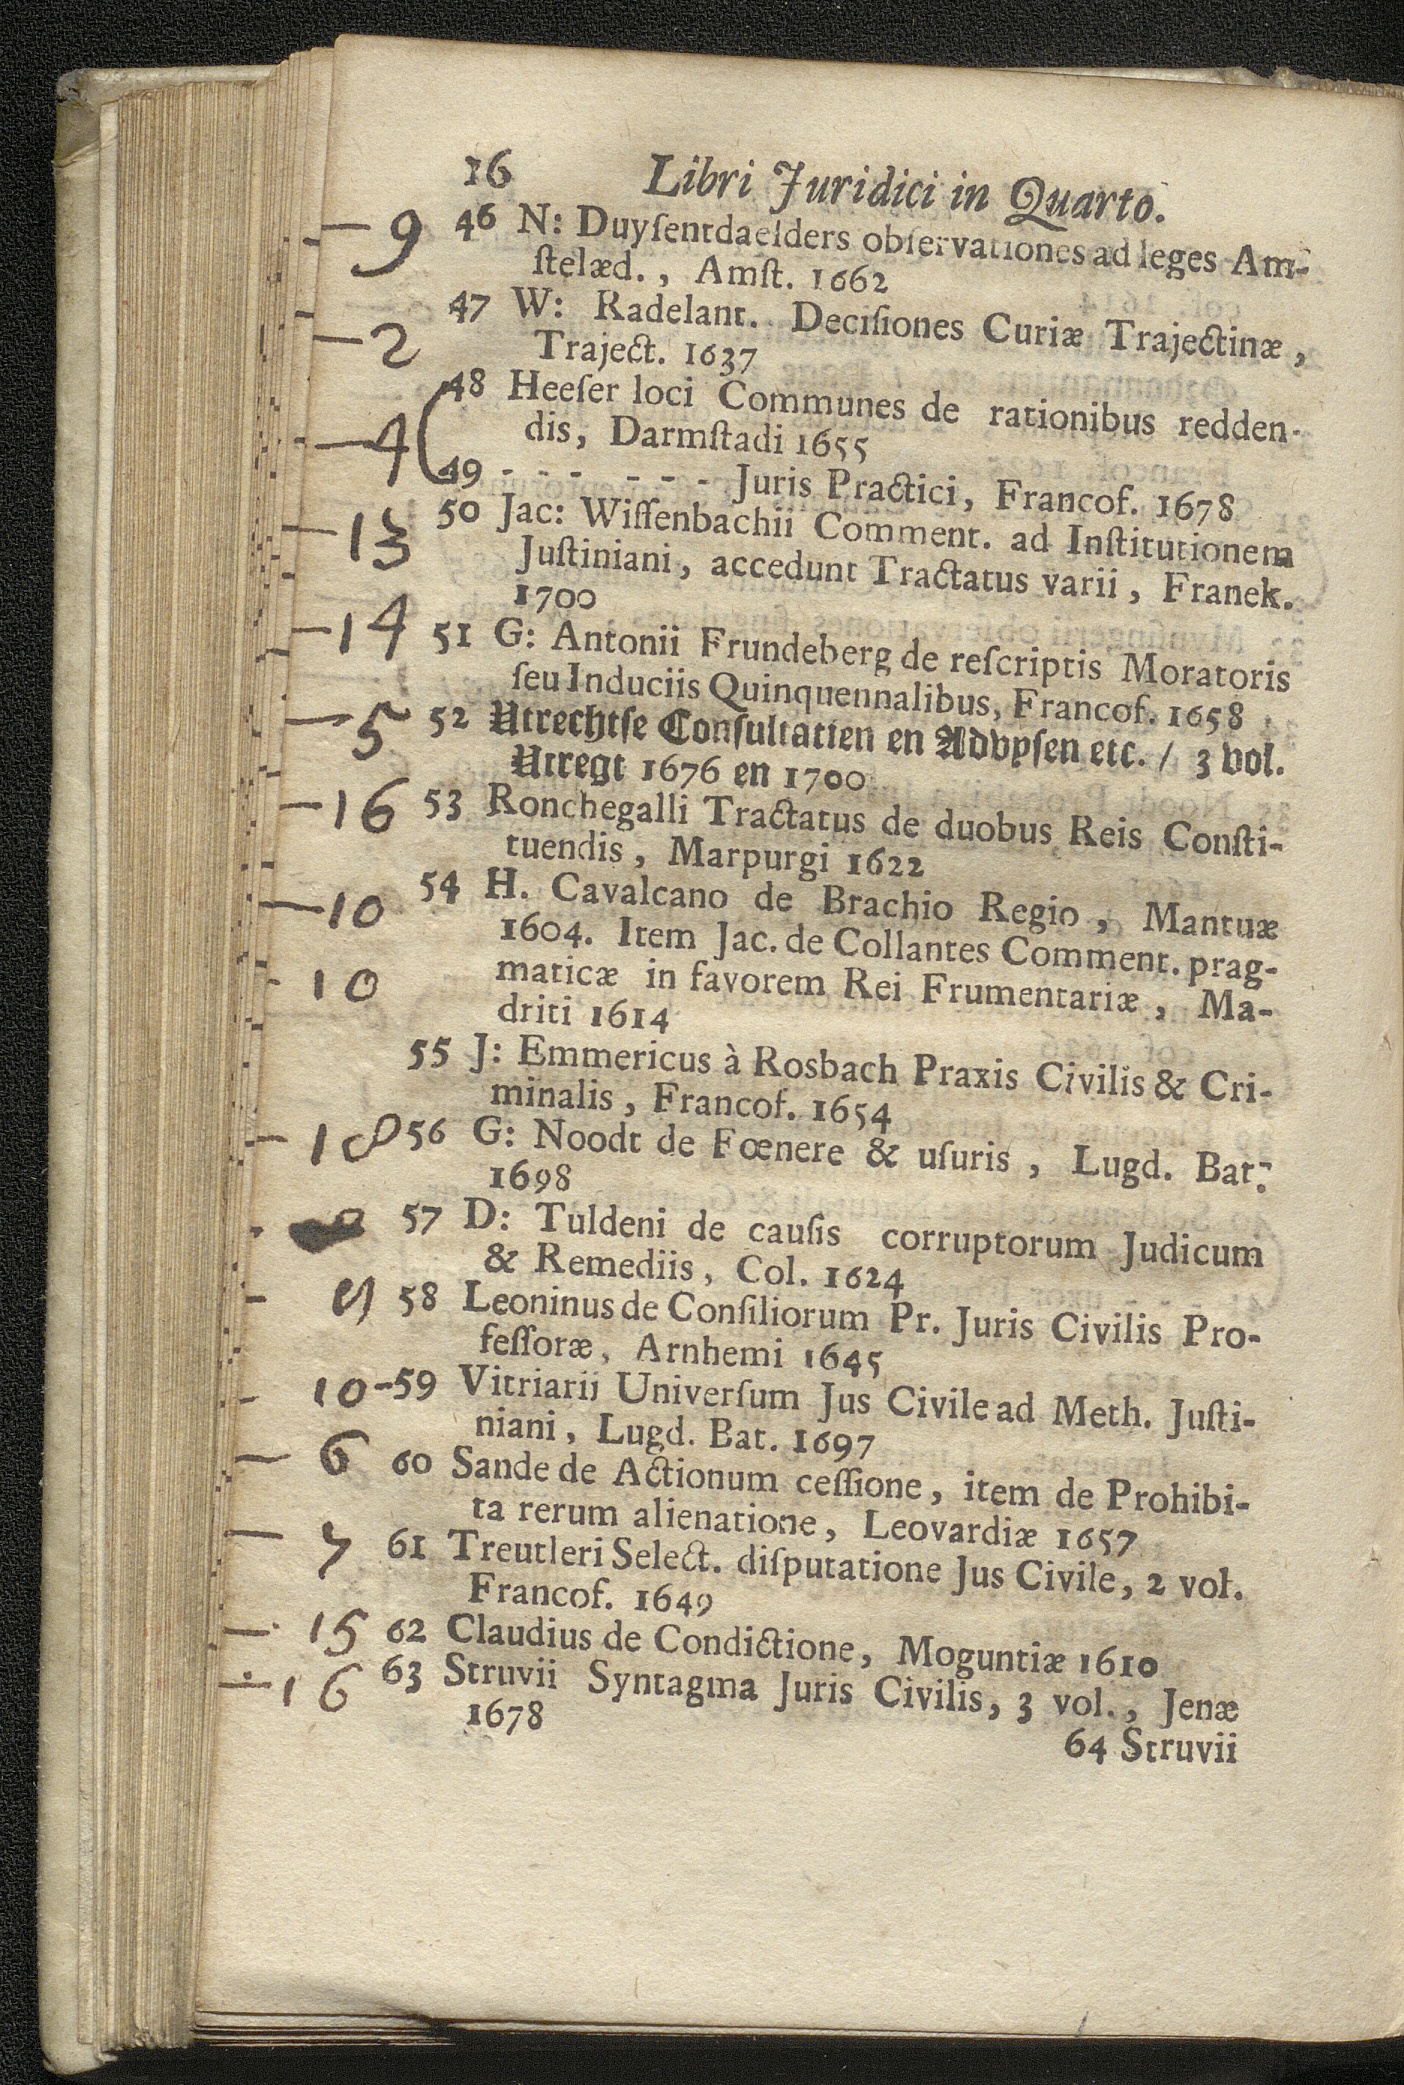 16 Libri Juridici in Quarto.
— 9 46 N: Duyſentdaelders obſervationes ad leges Am-
ſtelæd. , Amſt. 1662
— 2 47 W: Radelant. Deciſiones Curiæ Trajectinæ ,
Traject. 1637
48 Heeſer loci Communes de rationibus redden-
dis, Darmſtadi 1655
— 4 ( 49 - - - - - - Juris Practici, Francof. 1678
— 13 50 Jac: Wiſſenbachii Comment. ad Inſtitutionem
Juſtiniani, accedunt Tractatus varii, Franek.
1700
— 14 51 G: Antonii Frundeberg de reſcriptis Moratoris
ſeu Induciis Quinquennalibus, Francof. 1658
— 5 52 Utrechtſe Conſultatien en Advyſen etc. / 3 vol.
Utregt 1676 en 1700
— 16 53 Ronchegalli Tractatus de duobus Reis Conſti-
tuendis, Marpurgi 1622
— 10 54 H. Cavalcano de Brachio Regio, Mantuæ
1604. Item Jac. de Collantes Comment. prag-
10 maticæ in favorem Rei Frumentariæ, Ma-
driti 1614
55 J: Emmericus à Rosbach Praxis Civilis & Cri-
minalis, Francof. 1654
— 18 56 G: Noodt de Fœnere & uſuris, Lugd. Bat.
1698
57 D: Tuldeni de cauſis corruptorum Judicum
& Remediis, Col. 1624
58 Leoninus de Conſiliorum Pr. Juris Civilis Pro-
feſſoræ, Arnhemi 1645
10 - 59 Vitriarii Univerſum Jus Civile ad Meth. Juſti-
niani, Lugd. Bat. 1697
— 6 60 Sande de Actionum ceſſione, item de Prohibi-
ta rerum alienatione, Leovardiæ 1657
— 7 61 Treutleri Select. diſputatione Jus Civile, 2 vol.
Francof. 1649
— 15 62 Claudius de Condictione, Moguntiæ 1610
— 16 63 Struvii Syntagma Juris Civilis, 3 vol., Jenæ
1678
64 Struvii